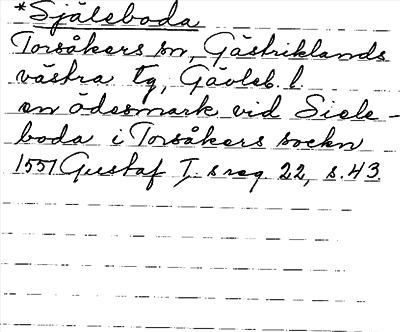 *Själeboda
Torsåkers sn, Gästriklands
västra tg, Gävleb. l.
en ödesmark vid Siele-
boda i Torsåkers sockn
1551 Gustaf I. s reg 22, s. 43.